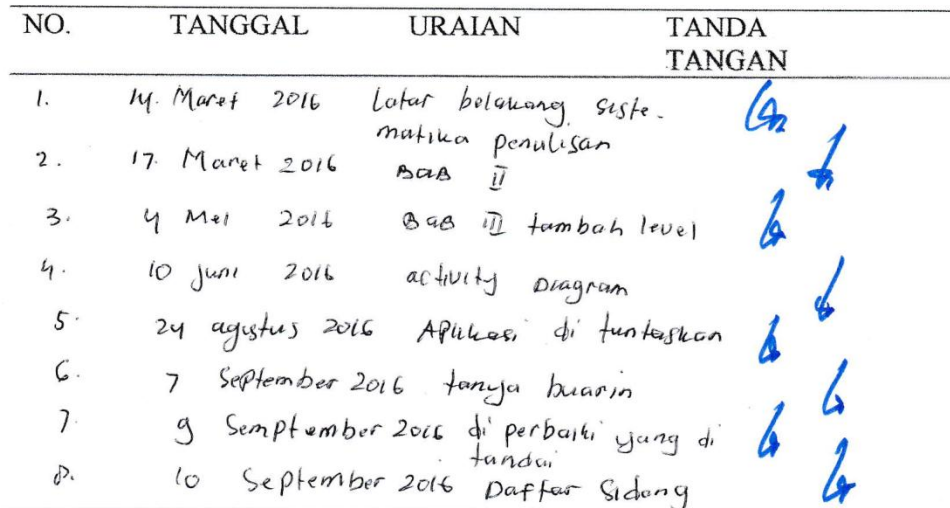 NO. TANGGAL URAIAN TANDA
TANGAN
1. 14. Maret 2016 Latar belakang, siste-
matika penulisan
2. 17. Maret 2016 BaB II
3. 4 Mei 2016 BaB III tambah level
4. 10 juni 2016 activity Diagram
5. 24 agustus 2016 APlikasi di tuntaskan
6. 7 September 2016 tanya buarin
7. 9 Semptember 2016 di perbaiki yang di
tandai
8. 10 September 2016 Daftar Sidang